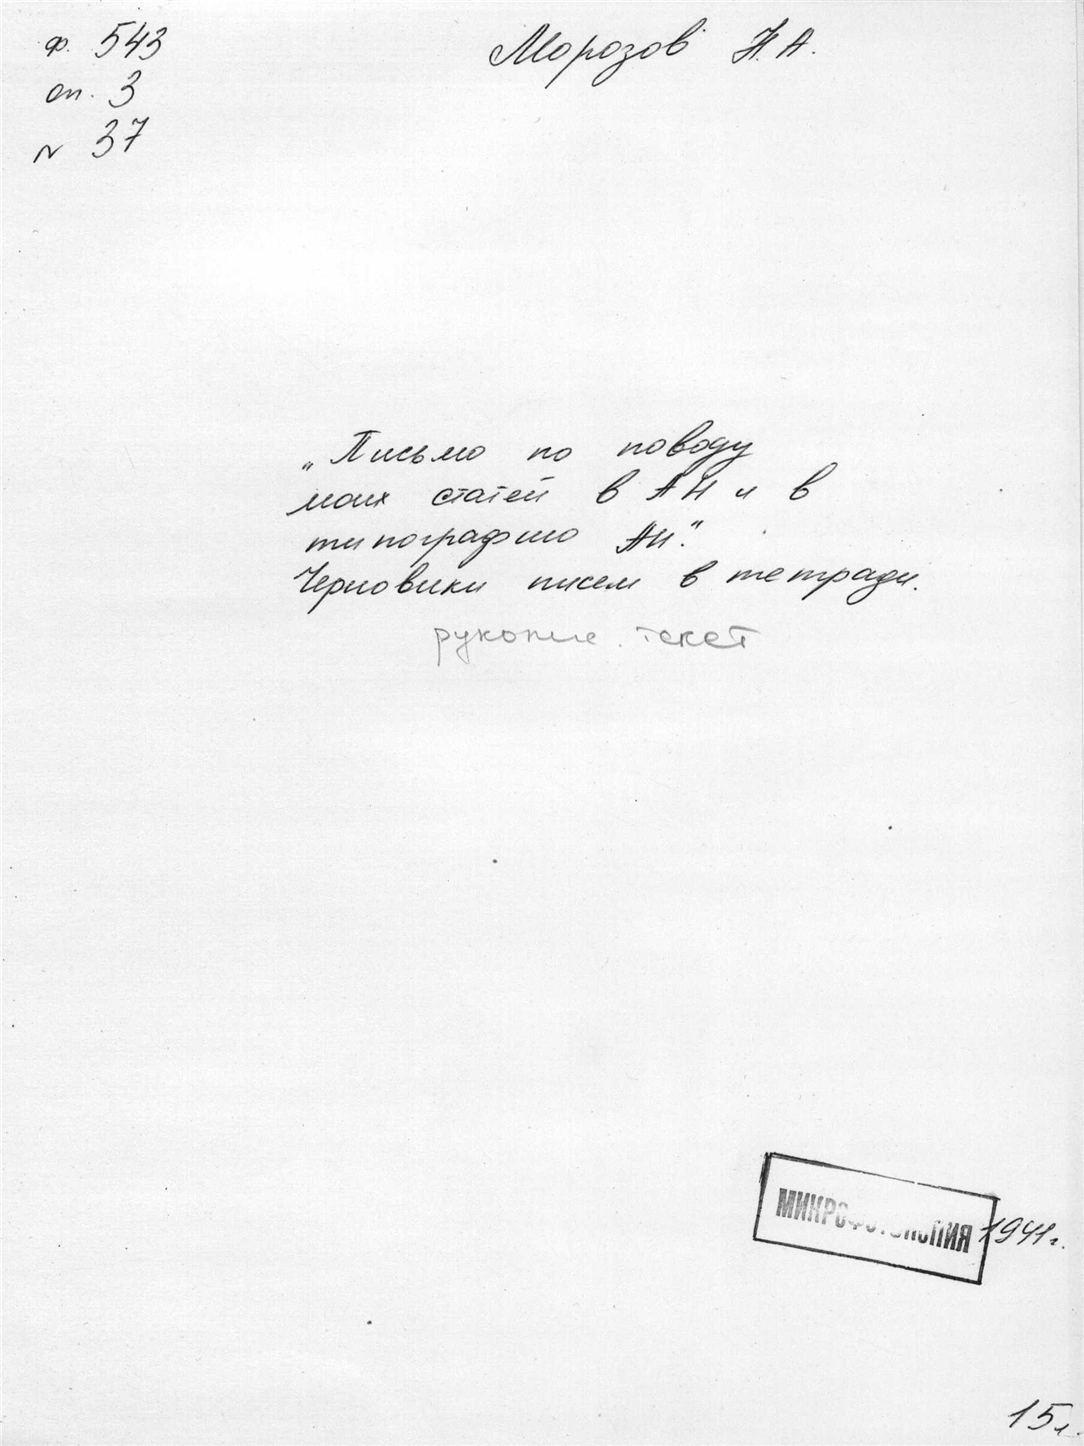 ф. 543
оп. 3
N 37
Морозов Н. А.
„Письмо по поводу
моих статей в АН и в
типографию АН".
Черновики писем в тетради.
рукопис. текст
МИКРОФОТОКОПИЯ
1941 г.
15 л.